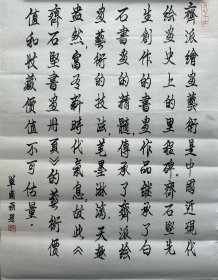 齊派繪畫藝術是中國近現代
繪畫史上的里程碑，齊石先
生創作的書畫作品繼承了白
石書畫的精髓，傳承了齊派繪
畫藝術的技法，筆墨淋漓天趣
盎然，富有時代氣息，故此《
齊石書畫冊頁》的藝術價
值和收藏價值不可估量。
題